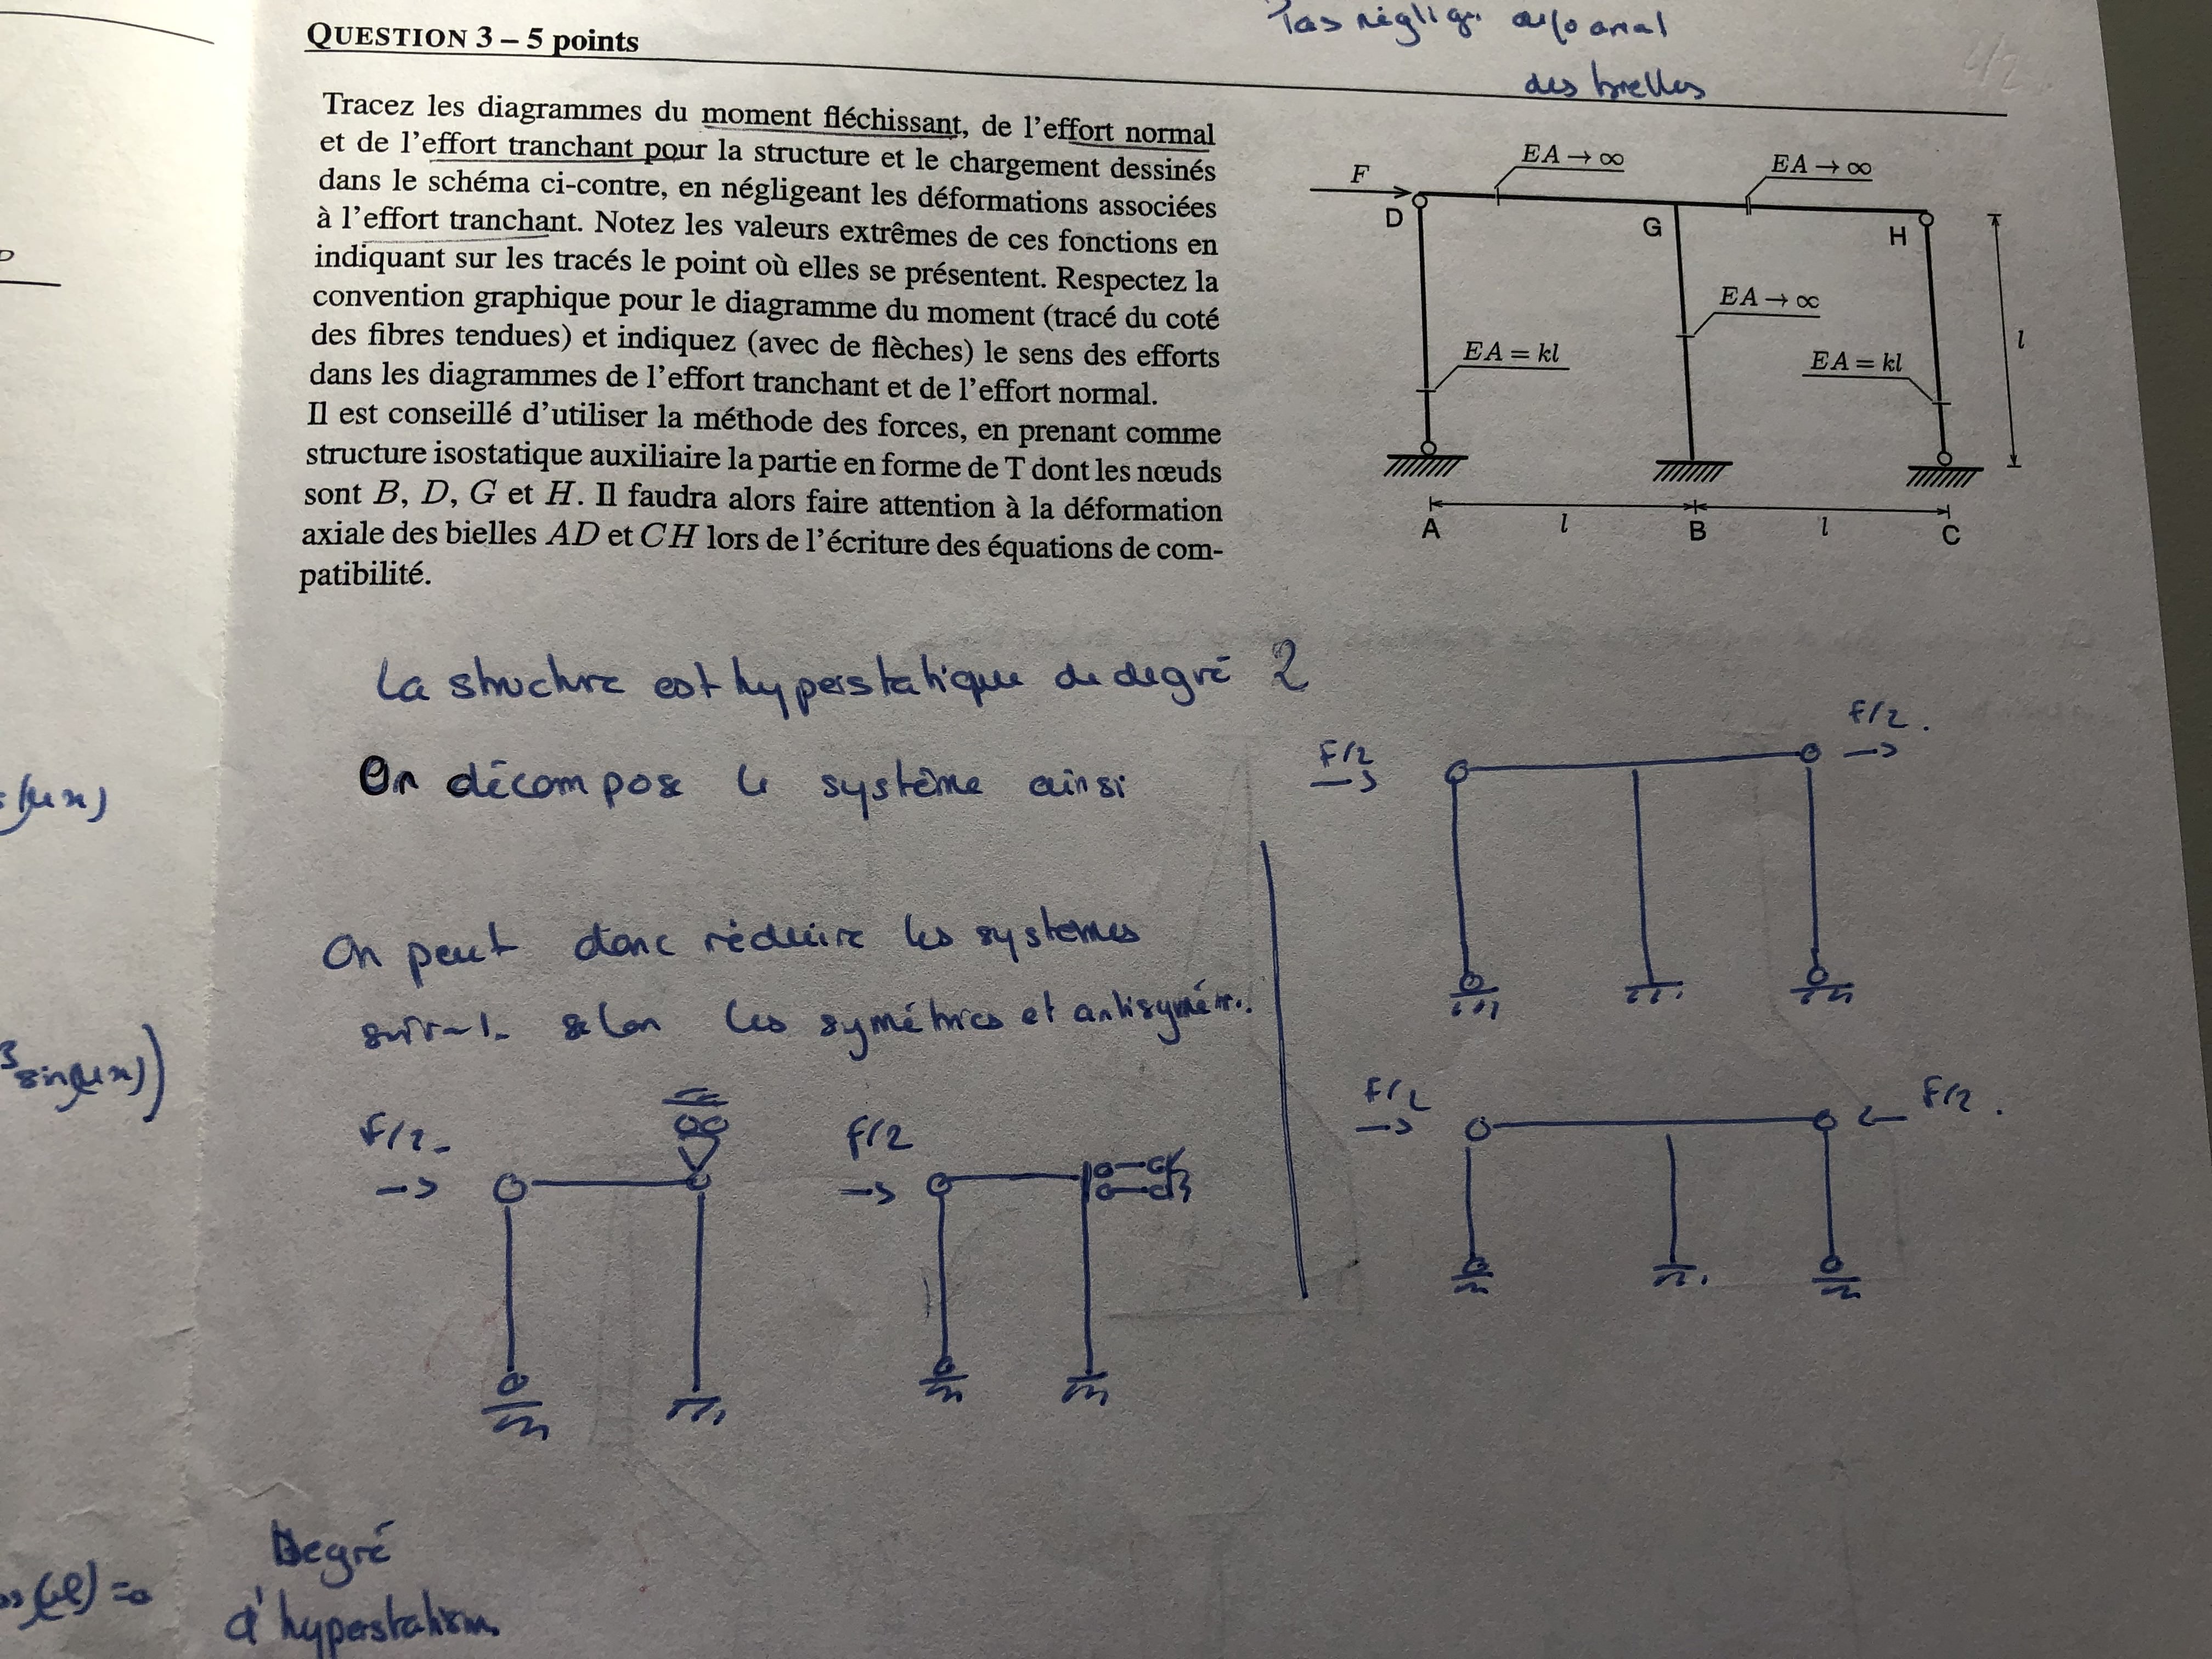 QUESTION 3 – 5 points
Tracez les diagrammes du moment fléchissant, de l'effort normal
et de l'effort tranchant pour la structure et le chargement dessinés
dans le schéma ci-contre, en négligeant les déformations associées
à l'effort tranchant. Notez les valeurs extrêmes de ces fonctions en
indiquant sur les tracés le point où elles se présentent. Respectez la
convention graphique pour le diagramme du moment (tracé du coté
des fibres tendues) et indiquez (avec de flèches) le sens des efforts
dans les diagrammes de l'effort tranchant et de l'effort normal.
Il est conseillé d'utiliser la méthode des forces, en prenant comme
structure isostatique auxiliaire la partie en forme de T dont les nœuds
sont B, D, G et H. Il faudra alors faire attention à la déformation
axiale des bielles AD et CH lors de l'écriture des équations de com-
patibilité.
des bielles
F
D
EA → ∞
G
EA → ∞
H
EA = kl
EA → ∞
EA = kl
l
A
l
B
l
C
La structure est hyperstatique de degré 2
On décompose le système ainsi
On peut donc réduire les systèmes
selon les symétries et antisymétr.
F/2
F/2
F/2
F/2
F/2
F/2
sin(μx))
(μx)
(μl) = 0
Degré
d'hyperstation